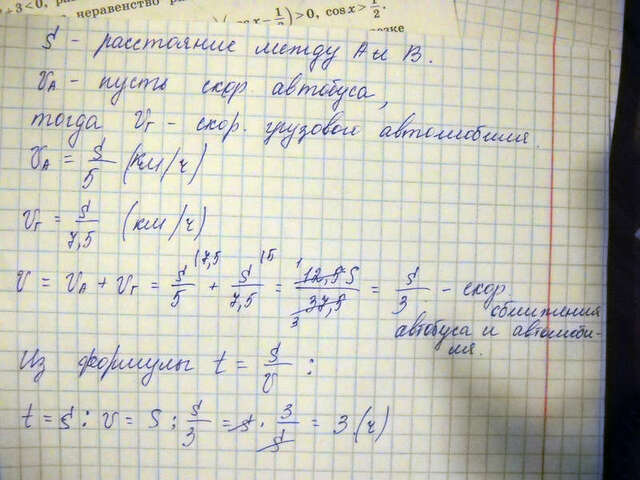 + 3 < 0, ра
неравенство
cos x - 1/2) > 0, cos x > 1/2.
S - расстояние между А и В.
V_A - пусть скор. автобуса,
тогда V_г - скор. грузовой автомобиля.
V_A = S/5 (км/ч)
V_г = S/7,5 (км/ч)
V = V_A + V_г = S/5 (7,5 + S/7,5 (5 = 12,5S/37,5 1 3 = S/3 - скор.
сближения
автобуса и автомоби-
ля.
Из формулы t = S/V :
t = S : V = S : S/3 = S · 3/S = 3 (ч)